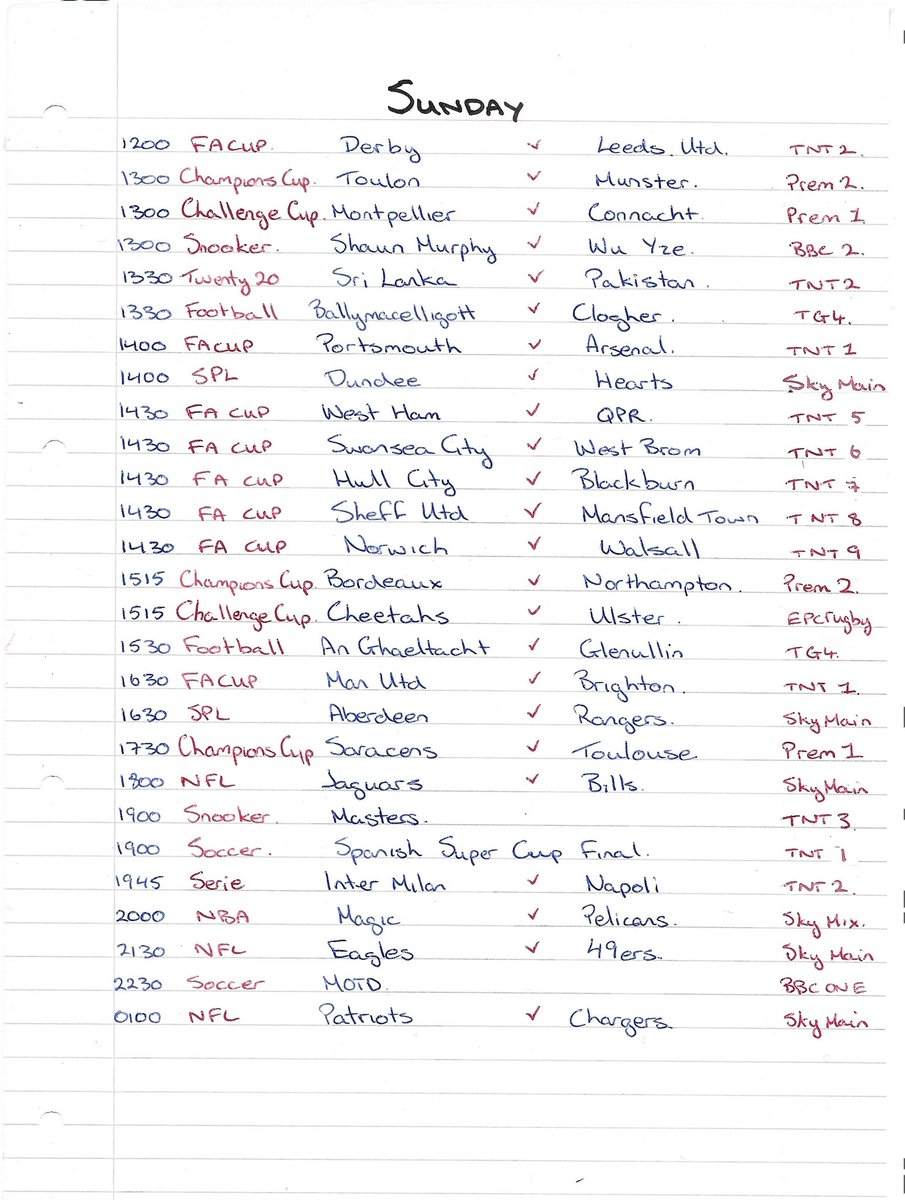 SUNDAY
1200 FA CUP. Derby v Leeds Utd. TNT 2.
1300 Champions Cup. Toulon v Munster. Prem 2.
1300 Challenge Cup. Montpellier v Connacht. Prem 1
1300 Snooker. Shaun Murphy v Wu Yze. BBC 2.
1330 Twenty 20 Sri Lanka v Pakistan. TNT 2
1330 Football Ballymacelligott v Clogher. TG4.
1400 FA CUP Portsmouth v Arsenal. TNT 1
1400 SPL Dundee v Hearts Sky Main
1430 FA CUP West Ham v QPR. TNT 5
1430 FA CUP Swansea City v West Brom TNT 6
1430 FA CUP Hull City v Blackburn TNT 7
1430 FA CUP Sheff Utd v Mansfield Town TNT 8
1430 FA CUP Norwich v Walsall TNT 9
1515 Champions Cup. Bordeaux v Northampton. Prem 2.
1515 Challenge Cup. Cheetahs v Ulster. EPCrugby
1530 Football An Ghaeltacht v Glenullin TG4.
1630 FA CUP Man Utd v Brighton. TNT 1.
1630 SPL Aberdeen v Rangers. Sky Main
1730 Champions Cup Saracens v Toulouse. Prem 1
1800 NFL Jaguars v Bills. Sky Main
1900 Snooker. Masters. TNT 3.
1900 Soccer. Spanish Super Cup Final. TNT 1
1945 Serie Inter Milan v Napoli TNT 2.
2000 NBA Magic v Pelicans. Sky Mix.
2130 NFL Eagles v 49ers. Sky Main
2230 Soccer MOTD. BBC ONE
0100 NFL Patriots v Chargers. Sky Main